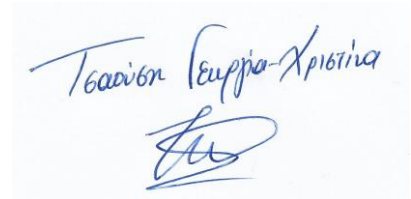 Τσαούση Γεωργία-Χριστίνα